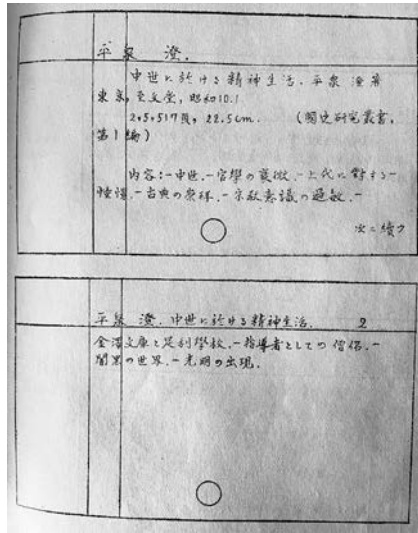 平泉 澄.
中世に於ける精神生活. 平泉 澄著
東京, 至文堂, 昭和10.1
2,5,517頁, 22.5cm. (國史研究叢書,
第1編)
内容:-中世.-官學の衰微.-上代に對する
憧憬.-古典の崇拝.-宗教意識の過敏.-
次ニ續ク
平泉 澄. 中世に於ける精神生活. 2
金澤文庫と足利學校.-指導者としての僧侶.-
闇黒の世界.-光明の出現.